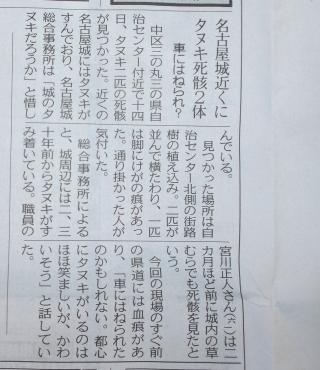 名古屋城近くに
タヌキ死骸2体
車にはねられ?
中区三の丸三の県自
治センター付近で十四
日、タヌキ二匹の死骸
が見つかった。近くの
名古屋城にはタヌキが
すんでおり、名古屋城
総合事務所は「城のタ
ヌキだろうか」と惜し
んでいる。
見つかった場所は自
治センター北側の街路
樹の植え込み。二匹が
並んで横たわり、一匹
は脚にけがの痕があっ
た。通り掛かった人が
気付いた。
総合事務所による
と、城周辺には二、三
十年前からタヌキがす
み着いている。職員の
宮川正人さん(六〇)は二
カ月ほど前に城内の草
むらでも死骸を見たと
いう。
今回の現場のすぐ前
の県道には血痕があ
り、「車にはねられた
のかもしれない。都心
にタヌキがいるのは
ほほ笑ましいが、かわ
いそう」と話してい
た。